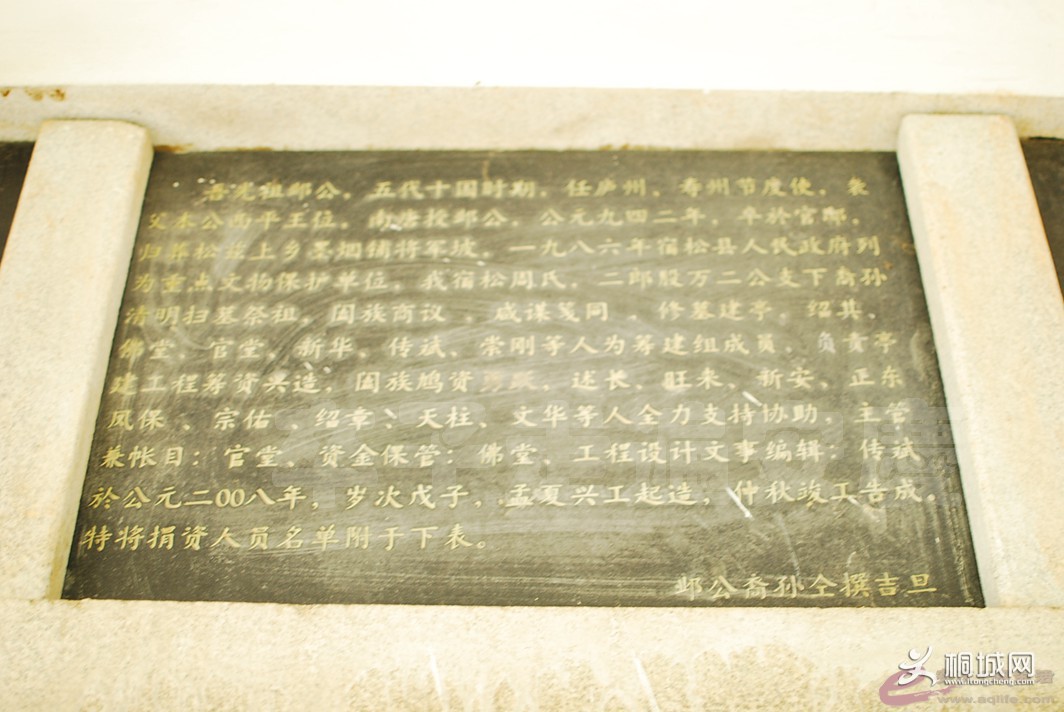 吾先祖邺公，五代十国时期，任庐州、寿州节度使，袭
父本公西平王位，南唐授邺公，公元九四二年，卒於官邸，
归葬松兹上乡墨烟铺将军坡，一九八六年宿松县人民政府列
为重点文物保护单位，我宿松周氏，二郎股万二公支下裔孙
清明扫墓祭祖，阖族商议、咸谋笺同、修墓建亭，绍其、
佛堂、官堂、新华、传斌、崇刚等人为筹建组成员，负责亭
建工程筹资兴造，阖族鸠资，述长、旺来、新安、正东
凤保、宗佑、绍章、天柱、文华等人全力支持协助，主管
兼帐目：官堂、资金保管：佛堂、工程设计文事编辑：传斌
於公元二00八年，岁次戊子，孟夏兴工起造，仲秋竣工告成。
特将捐资人员名单附于下表。
邺公裔孙仝撰吉旦
桐城网
www.itongcheng.com
www.aqlife.com